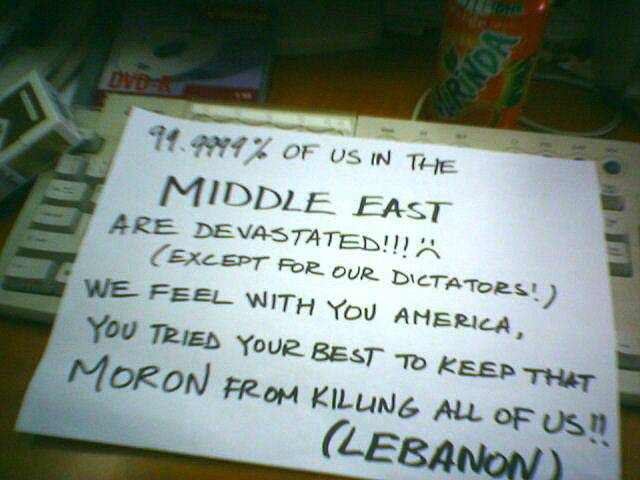 DVD-R
MiRiNDA
99.9999% OF US IN THE
MIDDLE EAST
ARE DEVASTATED!!! :(
(EXCEPT FOR OUR DICTATORS!)
WE FEEL WITH YOU AMERICA,
YOU TRIED YOUR BEST TO KEEP THAT
MORON FROM KILLING ALL OF US!!
(LEBANON)